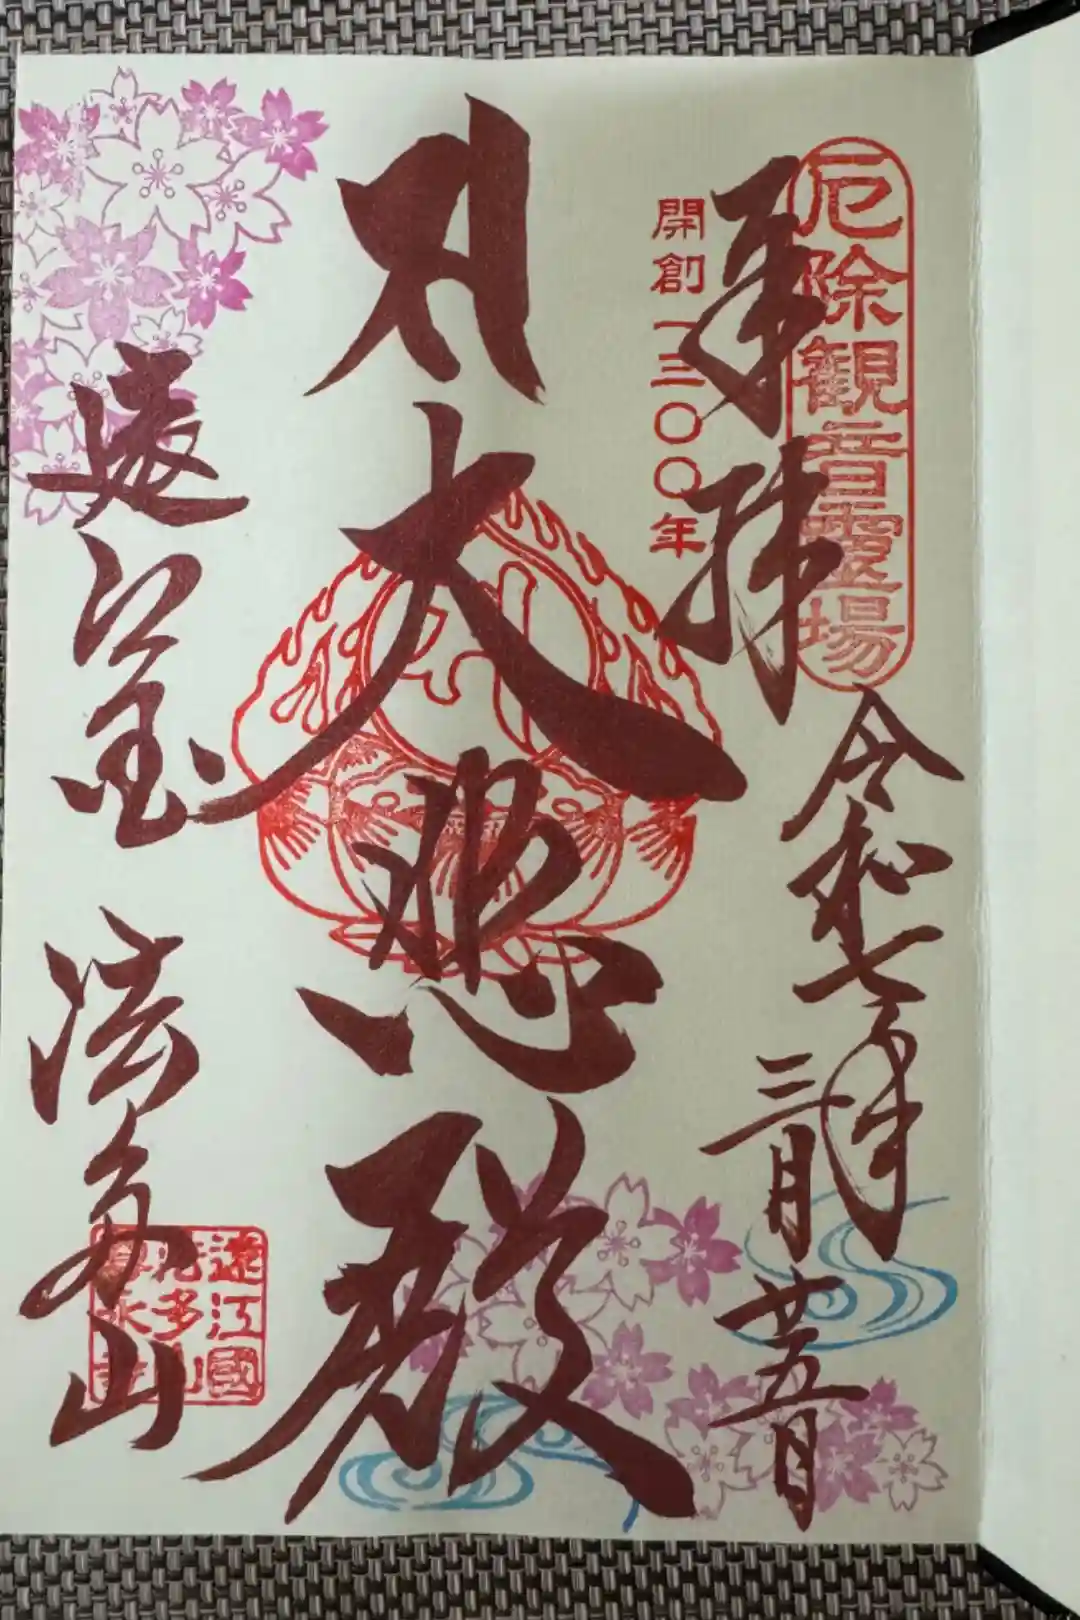 厄除観音霊場
奉拝
開創一三〇〇年
令和七年
三月廿五日
大悲殿
遠江
法多山
遠江國
法多山
尊永寺